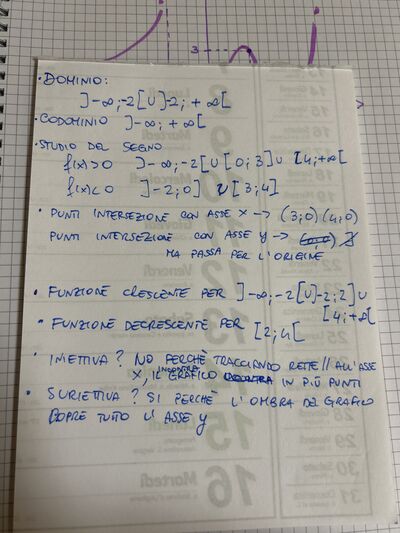 3
• DOMINIO:
]-∞;-2[U]-2;+∞[
• CODOMINIO ]-∞;+∞[
• STUDIO DEL SEGNO
f(x)>0 ]-∞;-2[U[0;3]U[4;+∞[
f(x)<0 ]-2;0] U[3;4]
• PUNTI INTERSEZIONE CON ASSE X → (3;0) (4;0)
PUNTI INTERSEZIONE CON ASSE y →
MA PASSA PER L'ORIGINE
• FUNZIONE CRESCENTE PER ]-∞;-2[U]-2;2]U
[4;+∞[
• FUNZIONE DECRESCENTE PER [2;4[
• INIETTIVA? NO PERCHÈ TRACCIANDO RETTE // ALL'ASSE
X, IL GRAFICO INCONTRA IN PIÙ PUNTI
• SURIETTIVA? SI PERCHÈ L'OMBRA DEL GRAFICO
COPRE TUTTO L'ASSE y